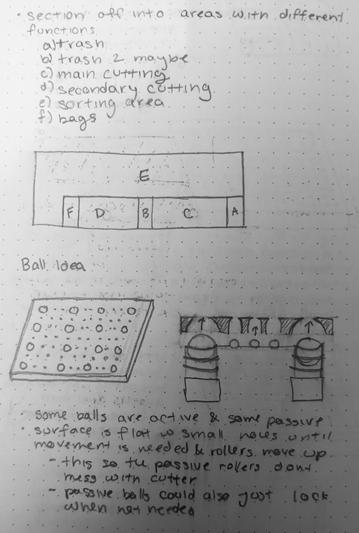 • section off into areas with different
functions
a) trash
b) trash 2 maybe
c) main cutting
d) secondary cutting
e) sorting area
f) bags
E
F D B C A
Ball Idea
• some balls are active & some passive
• surface is flat w small holes until
movement is needed & rollers move up
- this so the passive rollers dont
mess with cutter
- passive balls could also just lock
when not needed